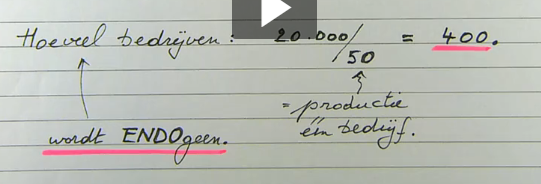 Hoeveel bedrijven: 20.000/50 = 400.
= productie
één bedrijf.
wordt ENDOgeen.